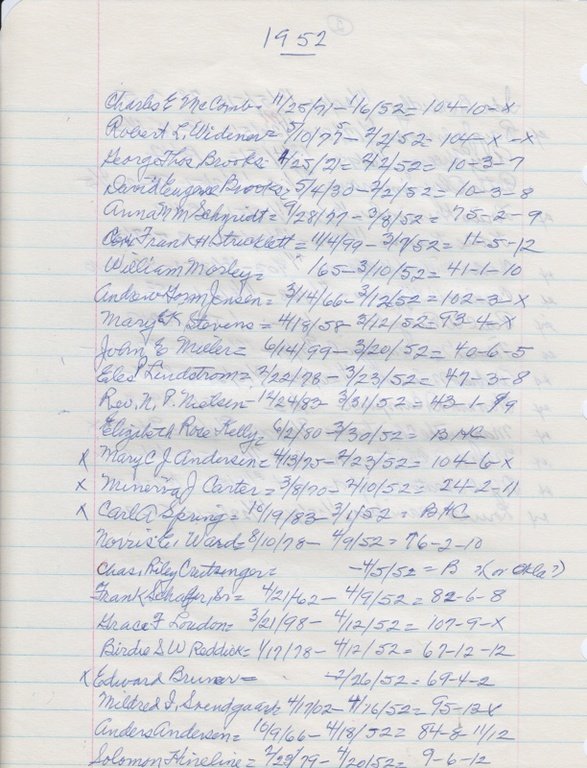 1952
Charles E McComb = 11/25/71 - 1/6/52 = 104-10-X
Robert L Widener = 5/10/775 - 2/2/52 = 104-X-X
George Thos Brooks - 1/25/21 = 2/2/52 = 10-3-7
David Eugene Brooks - 5/4/30 - 2/2/52 = 10-3-8
Anna M M Schmidt = 9/28/77 - 3/8/52 = 75-2-9
Frank H Stricklett = 11/4/99 - 3/7/52 = 11-5-12
William Mosley = /65 - 3/10/52 = 41-1-10
Andrew Gorm Jensen = 3/14/66 - 3/12/52 = 102-3-X
Mary K Stevens = 4/18/58 - 3/12/52 = 93-4-X
John E Miller = 6/14/99 - 3/20/52 = 40-6-5
Lindstrom = 2/22/78 - 3/23/52 = 47-3-8
Rev. N. P. Nielsen - 12/24/83 - 3/31/52 = 43-1-9
Elizabeth Rose Kelly = 6/2/80 - 3/30/52 = BAC
X Mary C J Andersen = 4/13/75 - 2/23/52 = 104-6-X
X Minerva J Carter = 3/8/70 - 2/10/52 = 24-2-11
X Carl A Spring = 10/19/83 - 3/1/52 = BAC
Norris E. Ward = 8/10/78 - 4/9/52 = 76-2-10
Chas. Riley Cartzinger = -4/5/52 = B ?(or Okla?)
Frank Schaffer, Sr = 4/21/62 - 4/9/52 = 82-6-8
Grace F Loudon = 3/21/98 - 4/12/52 = 107-9-X
Birdie S W Reddick = 1/17/78 - 4/12/52 = 67-12-12
X Edward Bruner = -2/26/52 = 69-4-2
Mildred I, Svendgaard = 4/17/02 - 4/16/52 = 95-12X
Anders Andersen = 10/9/66 - 4/18/52 = 84-8-11/12
Solomon Hineline = 2/23/79 - 4/20/52 = 9-6-12